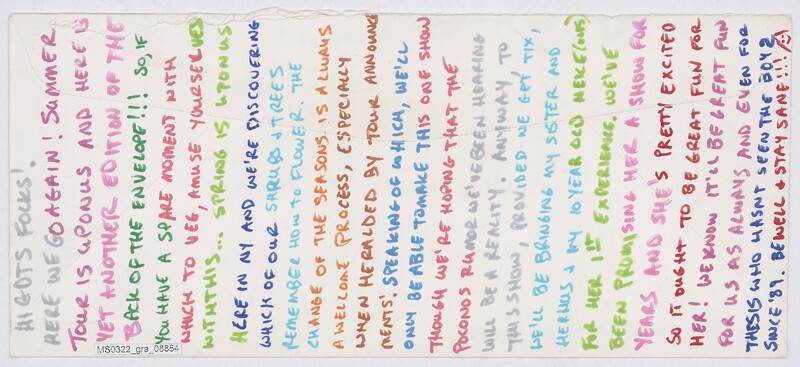 HI GDTS FOLKS!
HERE WE GO AGAIN! SUMMER
TOUR IS UPONUS AND HERE IS
YET ANOTHER EDITION OF THE
BACK OF THE ENVELOPE!!! SO, IF
YOU HAVE A SPARE MOMENT WITH
WHICH TO VEG, AMUSE YOURSELVES
WITHTHIS... SPRING IS UPONUS
HERE IN NY AND WE'RE DISCOVERING
WHICH OF OUR SHRUBS & TREES
REMEMBER HOW TO FLOWER. THE
CHANGE OF THE SEASONS IS ALWAYS
A WELCOME PROCESS, ESPECIALLY
WHEN HERALDED BY TOUR ANNOUNCE
MENTS. SPEAKING OF WHICH, WE'LL
ONLY BE ABLE TO MAKE THIS ONE SHOW
THOUGH WE'RE HOPING THAT THE
POCONOS RUMOR WE'VE BEEN HEARING
WILL BE A REALITY. ANYWAY, TO
THIS SHOW, PROVIDED WE GET TIX,
WE'LL BE BRINGING MY SISTER AND
HER HUS & MY 10 YEAR OLD NEICE (OURS)
FOR HER 1ST EXPERIENCE. WE'VE
BEEN PROMISING HER A SHOW FOR
YEARS AND SHE'S PRETTY EXCITED
SO IT OUGHT TO BE GREAT FUN FOR
HER! WE KNOW IT'LL BE GREAT FUN
FOR US AS ALWAYS AND EVEN FOR
THESIS WHO HASNT SEEN THE BOYZ
SINCE '89. BE WELL & STAY SANE!!!
MS0322_gra_08854